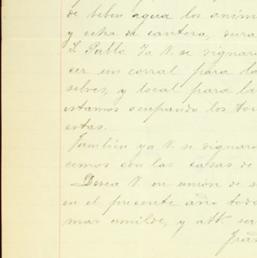 de beber agua los anim
y echa de cantera, dura
D. Pablo Ya V. se signará
cer un corral para la
selves, y local para la
estamos ocupando los ter
estas.
Tambien ya V. se signará
cemos con las casas de
Desea V. en union de s
en el presente año tod
mas umilde, y att se